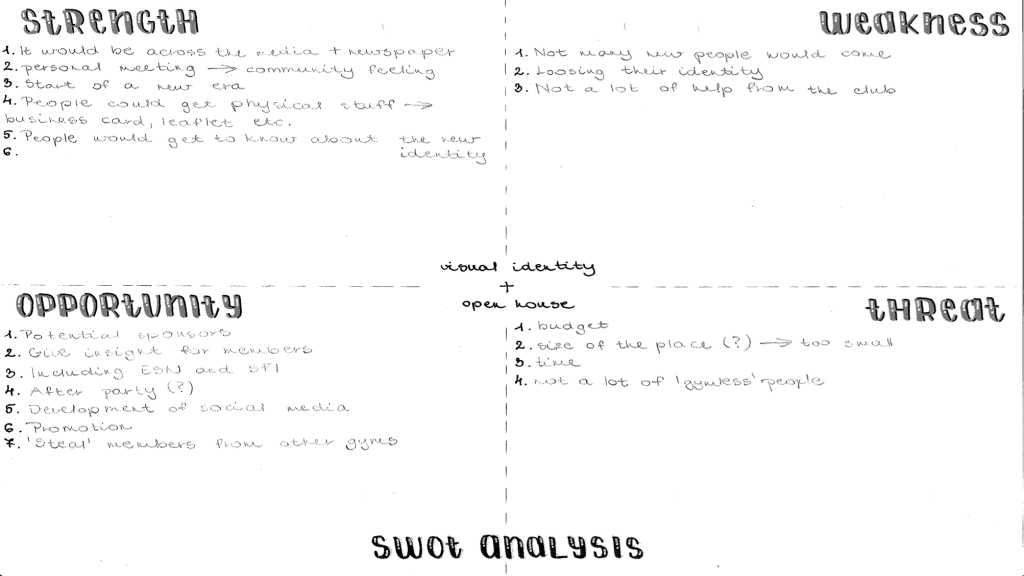 STRENGTH
1. It would be across the media + newspaper
2. personal meeting → community feeling
3. Start of a new era
4. People could get physical stuff →
business card, leaflet etc.
5. People would get to know about the new
6. identity
WEAKNESS
1. Not many new people would come
2. Loosing their identity
3. Not a lot of help from the club
visual identity
+
open house
OPPORTUNITY
1. Potential sponsors
2. Give insight for members
3. Including ESN and SFI
4. After party (?)
5. Development of social media
6. Promotion
7. 'Steal' members from other gyms
THREAT
1. budget
2. size of the place (?) → too small
3. time
4. not a lot of 'gymless' people
SWOT ANALYSIS